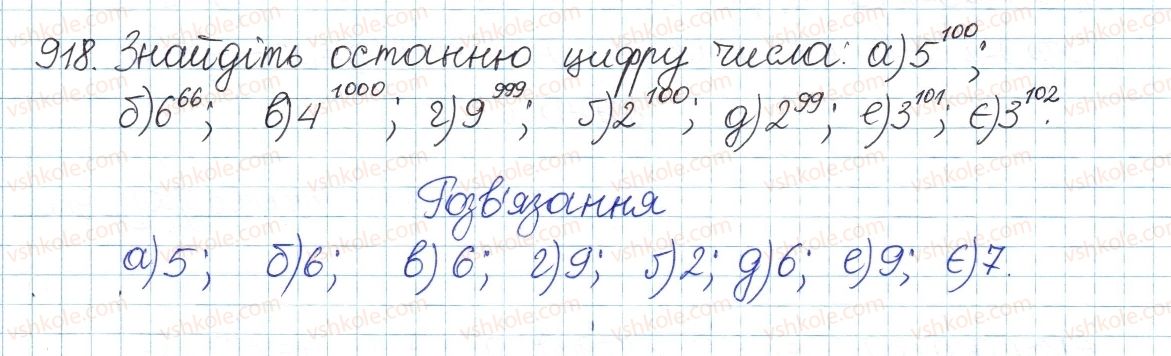 918. Знайдіть останню цифру числа: а) 5^100;
б) 6^66; в) 4^1000; г) 9^999; ґ) 2^100; д) 2^99; е) 3^101; є) 3^102.
Розв'язання
а) 5; б) 6; в) 6; г) 9; ґ) 2; д) 6; е) 9; є) 7.